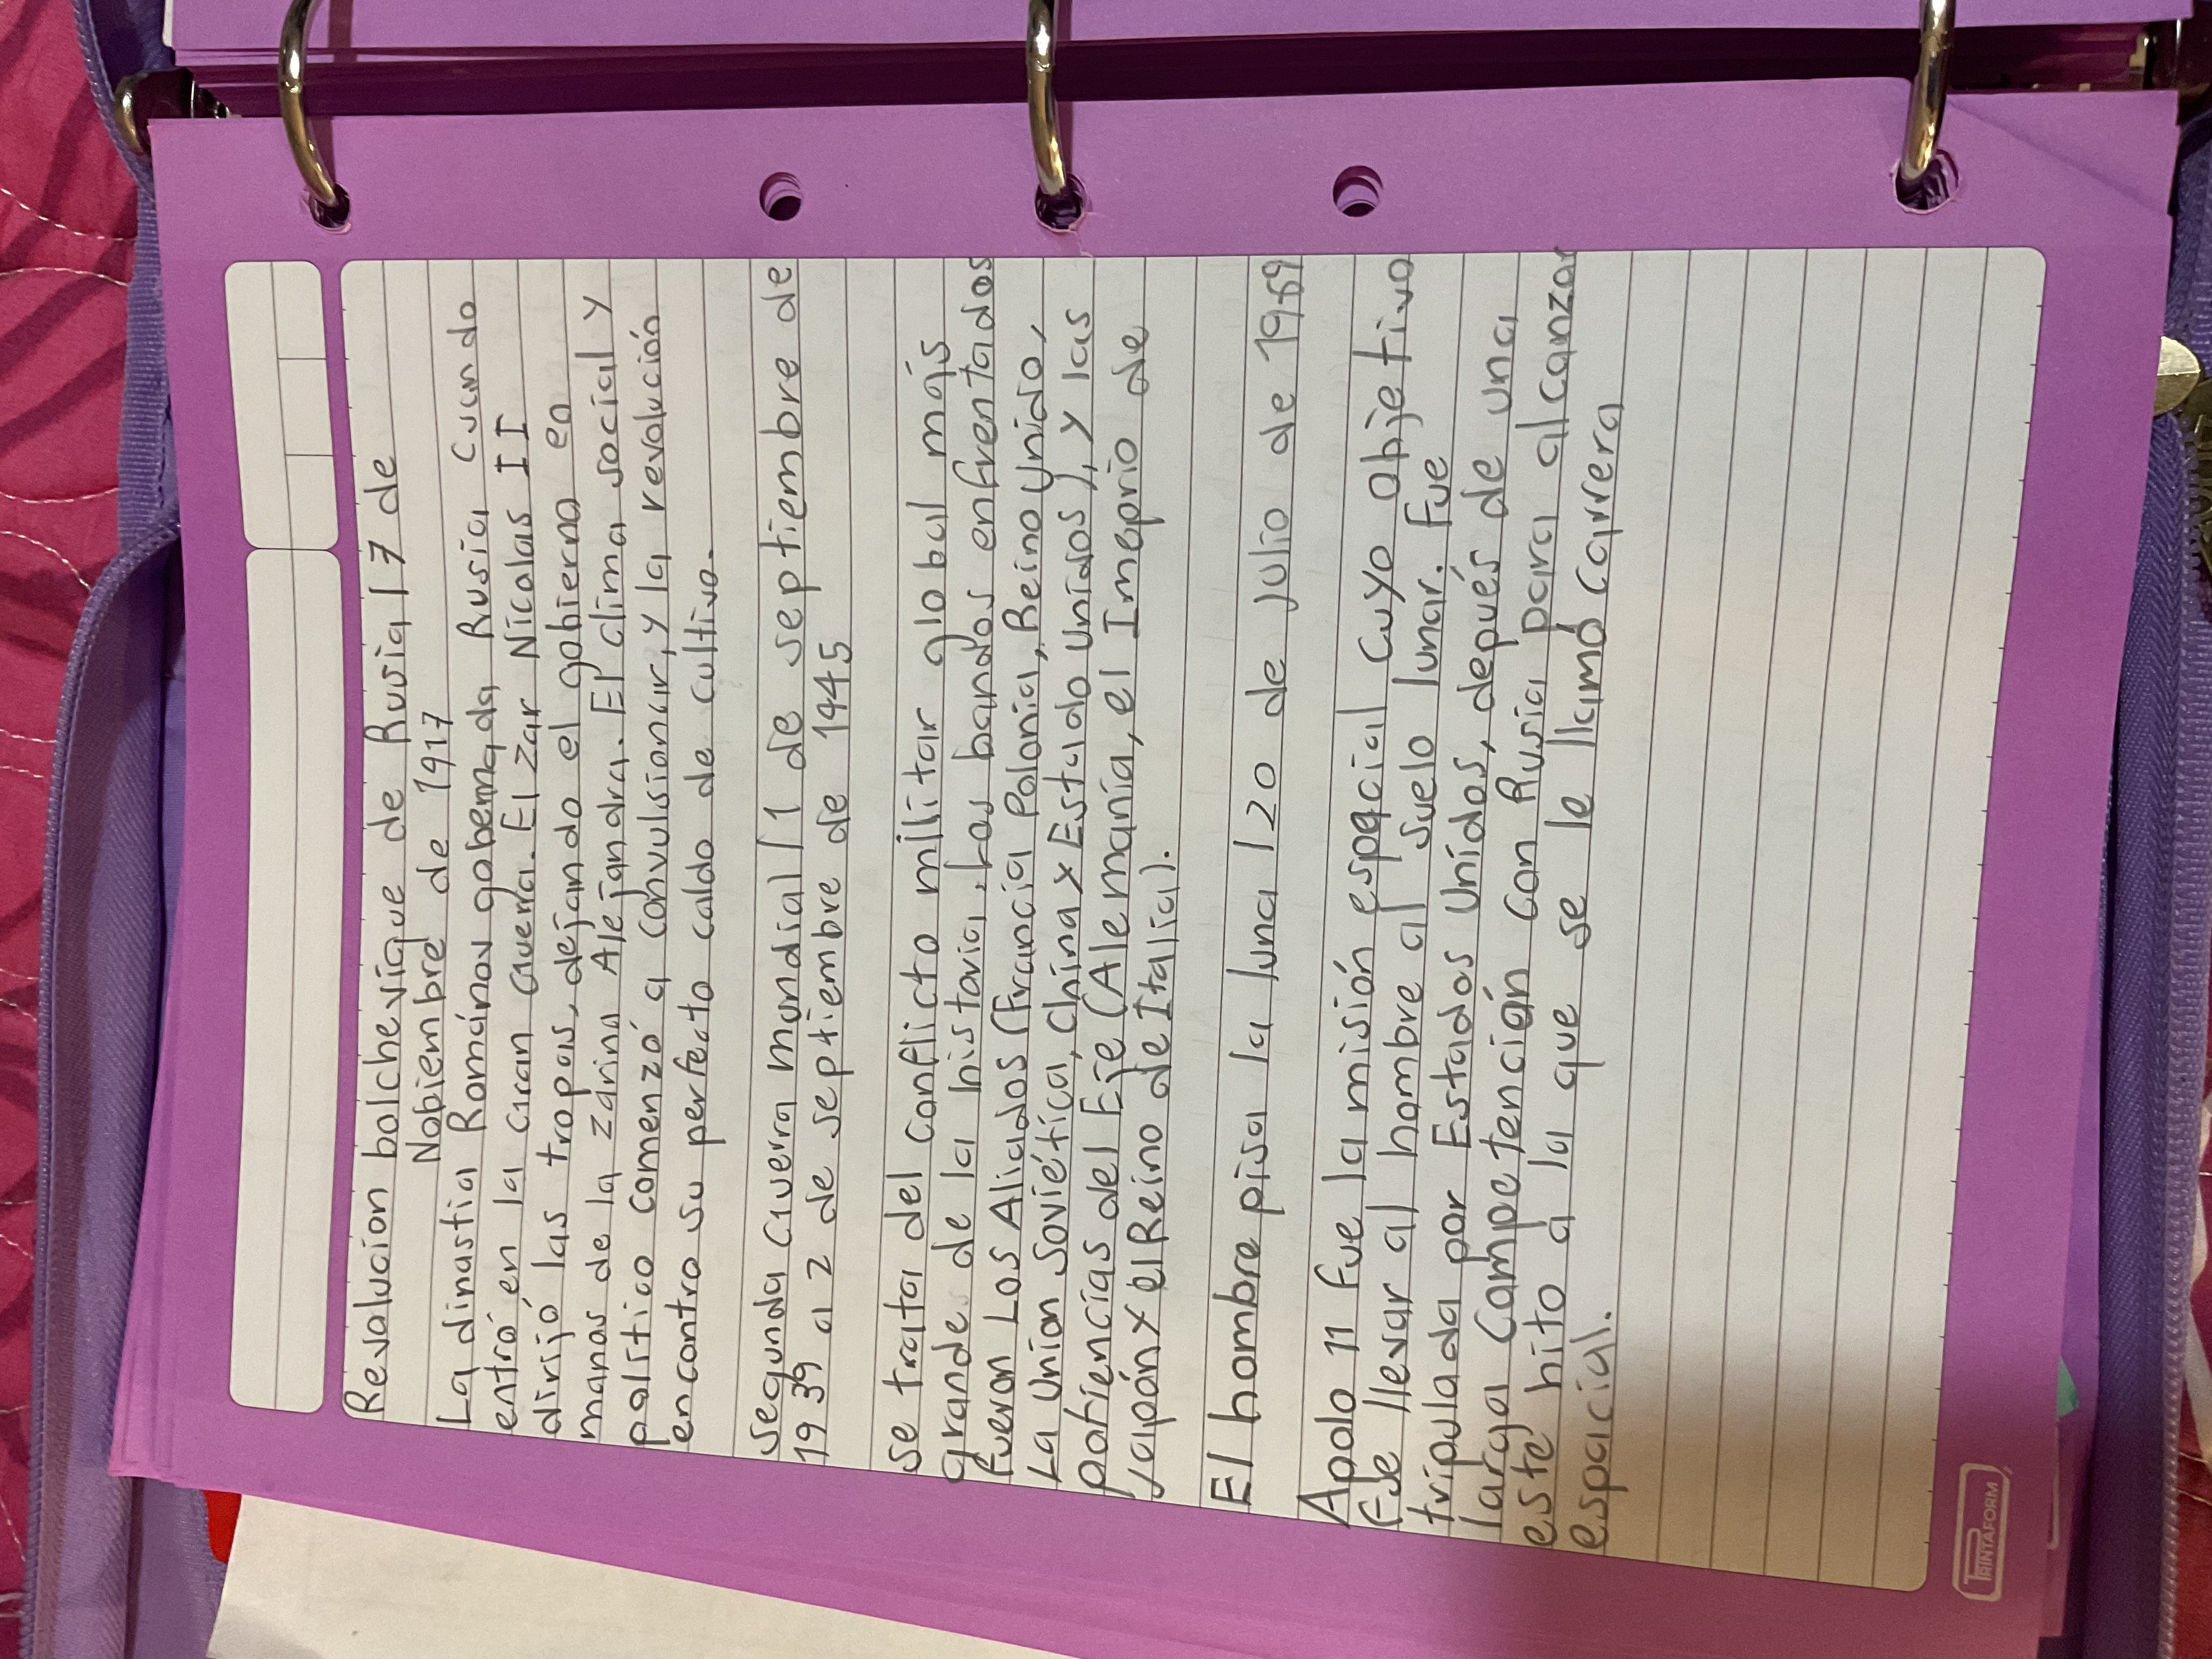 Revolucion bolchevique de Rusia / 7 de
Nobiembre de 1917
La dinastia Románov gobernada Rusia cuando
entró en la Gran Guerra. El zar Nicolas II
dirijó las tropas, dejando el gobierno en
manos de la zarina Alejandra. El clima social y
político comenzó a convulsionar, y la revolución
encontro su perfecto caldo de cultivo.
Segunda Guerra mundial / 1 de septiembre de
1939 a 2 de septiembre de 1945
Se trata del conflicto militar global más
grande de la historia. Los bandos enfrentados
fueron Los Aliados (Francia Polonia, Reino Unido,
La Union Soviética, China y Estado Unidos), y las
potiencias del Eje (Alemania, el Imeprio de
Japón y el Reino de Italia).
El hombre pisa la luna / 20 de julio de 1969
Apolo 11 fue la misión espacial cuyo objetivo
Fue llevar al hombre al suelo lunar. Fue
tripulada por Estados Unidos, depués de una
larga Competención con Rusia para alcanzar
este hito a la que se le llamó carrera
espacial.
PRINTAFORM